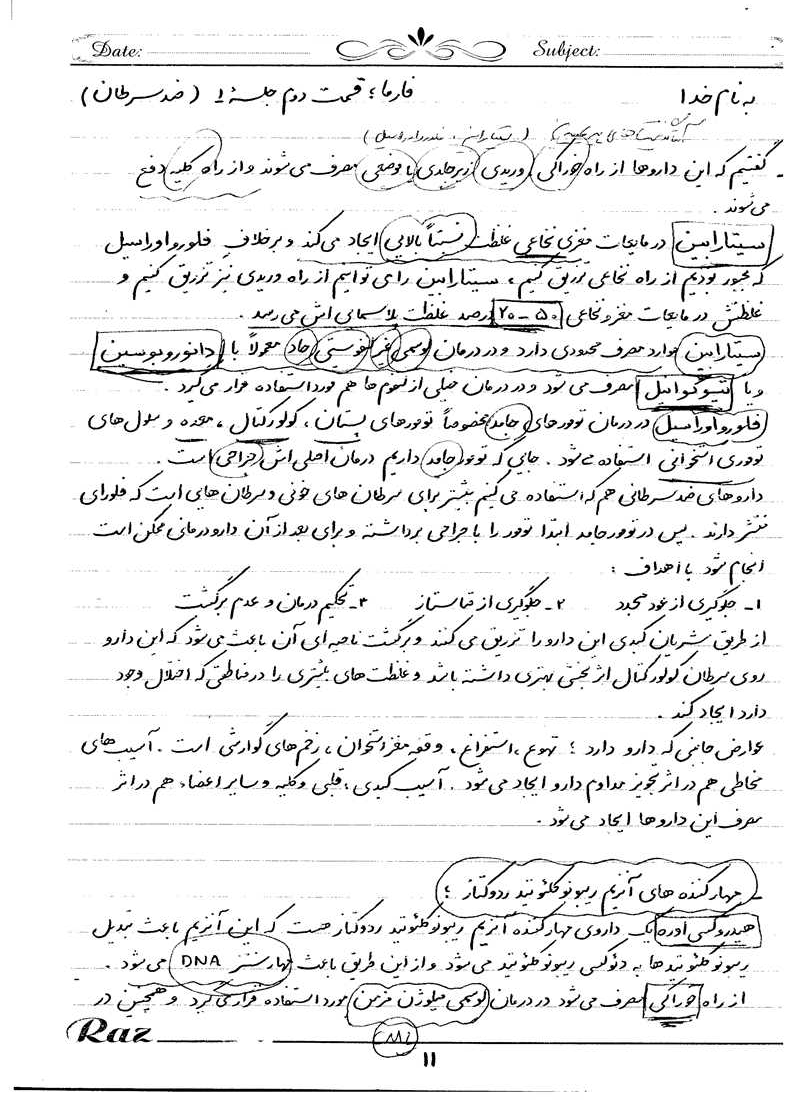 Date: Subject:
به نام خدا فارما؛ قسمت دوم جلسهٔ ۱ (ضد سرطان)
آنتاگونیست های پیریمیدین (سیتارابین، فلوئورواوراسیل)
- گفتیم که این داروها از راه خوراکی، وریدی، زیرجلدی یا موضعی مصرف می شوند و از راه کلیه دفع
می شوند.
سیتارابین در مایعات مغزی نخاعی غلظت نسبتاً بالایی ایجاد می کند و برخلاف فلورواوراسیل
که مجبور بودیم از راه نخاعی تزریق کنیم، سیتارابین را می توانیم از راه وریدی نیز تزریق کنیم و
غلظتش در مایعات مغزونخاعی ۵۰-۲۰ درصد غلظت پلاسمای اش می رسد.
سیتارابین موارد مصرف محدودی دارد و در درمان لوسمی غیر لنفوسیتی حاد معمولاً با دانوروبوسین
و یا تیوگوانیل مصرف می شود و در درمان خیلی از لنفوم ها هم مورد استفاده قرار می گیرد.
فلورواوراسیل در درمان تومورهای جامد مخصوصاً تومورهای پستان، کولورکتال، معده و سلول های
توموری استخوانی استفاده می شود. جایی که تومور جامد داریم درمان اصلی اش جراحی است.
داروهای ضدسرطانی هم که استفاده می کنیم بیشتر برای سرطان های خونی و سرطان هایی است که فلورای
منتشر دارند. پس در تومور جامد ابتدا تومور را با جراحی برداشته و برای بعد از آن دارودرمانی ممکن است
انجام شود با اهداف:
۱- جلوگیری از عود مجدد ۲- جلوگیری از متاستاز ۳- تحکیم درمان و عدم برگشت
از طریق شریان کبدی این دارو را تزریق می کنند و برگشت ناحیه ای آن باعث می شود که این دارو
روی سرطان کولورکتال اثربخشی بهتری داشته باشد و غلظت های بیشتری را در مناطقی که اختلال وجود
دارد ایجاد کند.
عوارض جانبی که دارو دارد؛ تهوع، استفراغ، وقفه مغز استخوان، زخم های گوارشی است. آسیب های
مخاطی هم در اثر تجویز مداوم دارو ایجاد می شود. آسیب کبدی، قلبی و کلیه و سایر اعضاء هم در اثر
مصرف این داروها ایجاد می شود.
مهارکننده های آنزیم ریبونوکلئوتید ردوکتاز؛
هیدروکسی اوره یک داروی مهارکننده آنزیم ریبونوکلئوتید ردوکتاز هست که این آنزیم باعث تبدیل
ریبونوکلئوتیدها به دئوکسی ریبونوکلئوتید می شود و از این طریق باعث مهار سنتز DNA می شود.
از راه خوراکی مصرف می شود در درمان لوسمی میلوژن مزمن مورد استفاده قرار می گیرد و همچنین در
Raz
۱۱